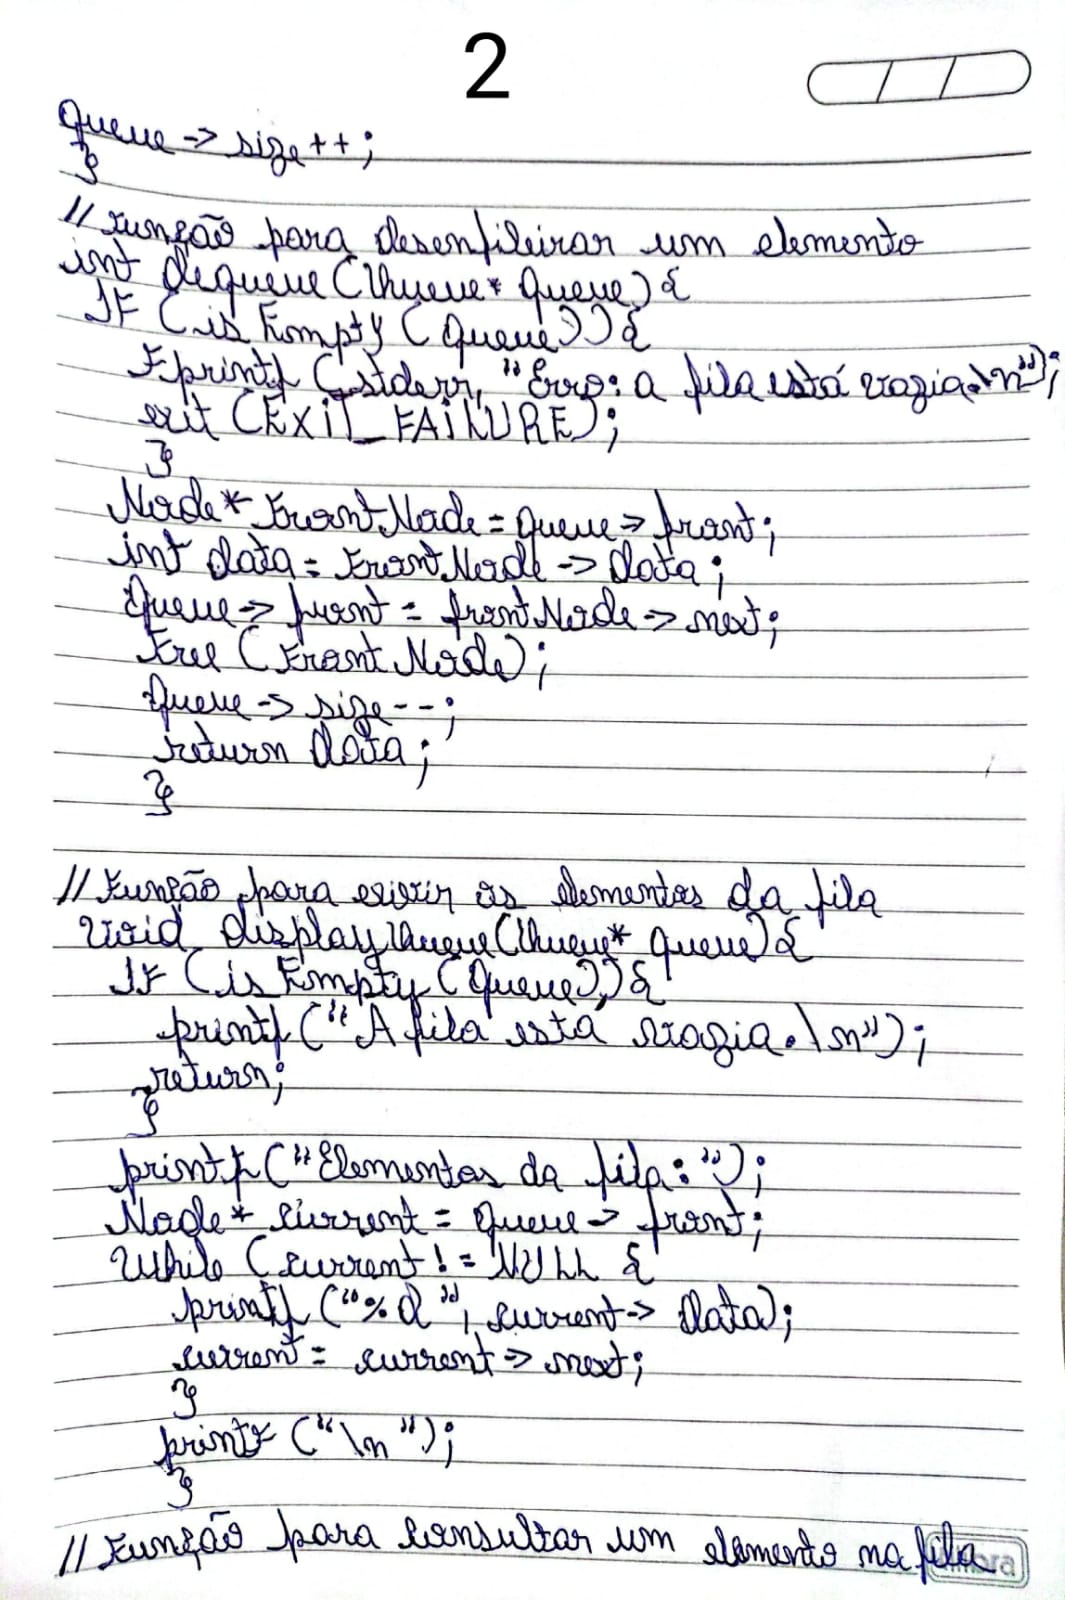 2
queue -> size++;
}
// Função para desenfileirar um elemento
int dequeue (Queue* queue) {
IF (isEmpty (queue)) {
Fprintf (stderr, "Erro: a fila está vazia.\n");
exit (EXIT_FAILURE);
}
Node* FrontNode = queue -> front;
int data = FrontNode -> data;
Queue -> front = frontNode -> next;
Free (FrontNode);
Queue -> size--;
return data;
}
// Função para exibir os elementos da fila
void displayQueue (Queue* queue) {
IF (isEmpty (Queue)) {
printf ("A fila está vazia.\n");
return;
}
printf ("Elementos da fila: ");
Node* current = queue -> front;
While (current != NULL {
printf ("%d ", current -> data);
current = current -> next;
}
printf ("\n");
}
// Função para consultar um elemento na fila